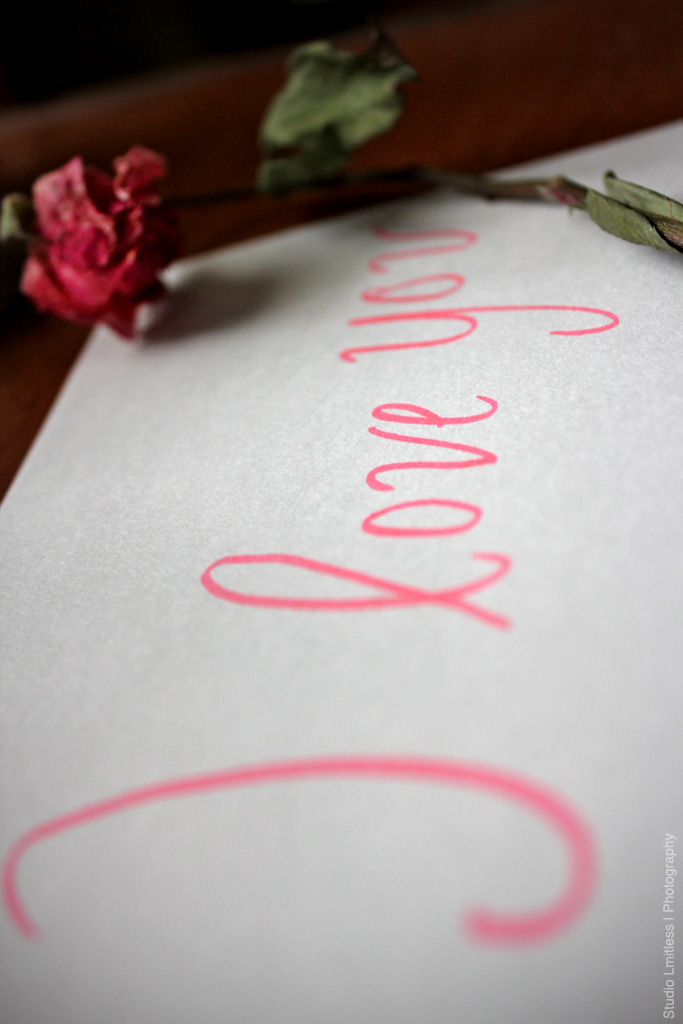 I love you
Studio Lmitless | Photography